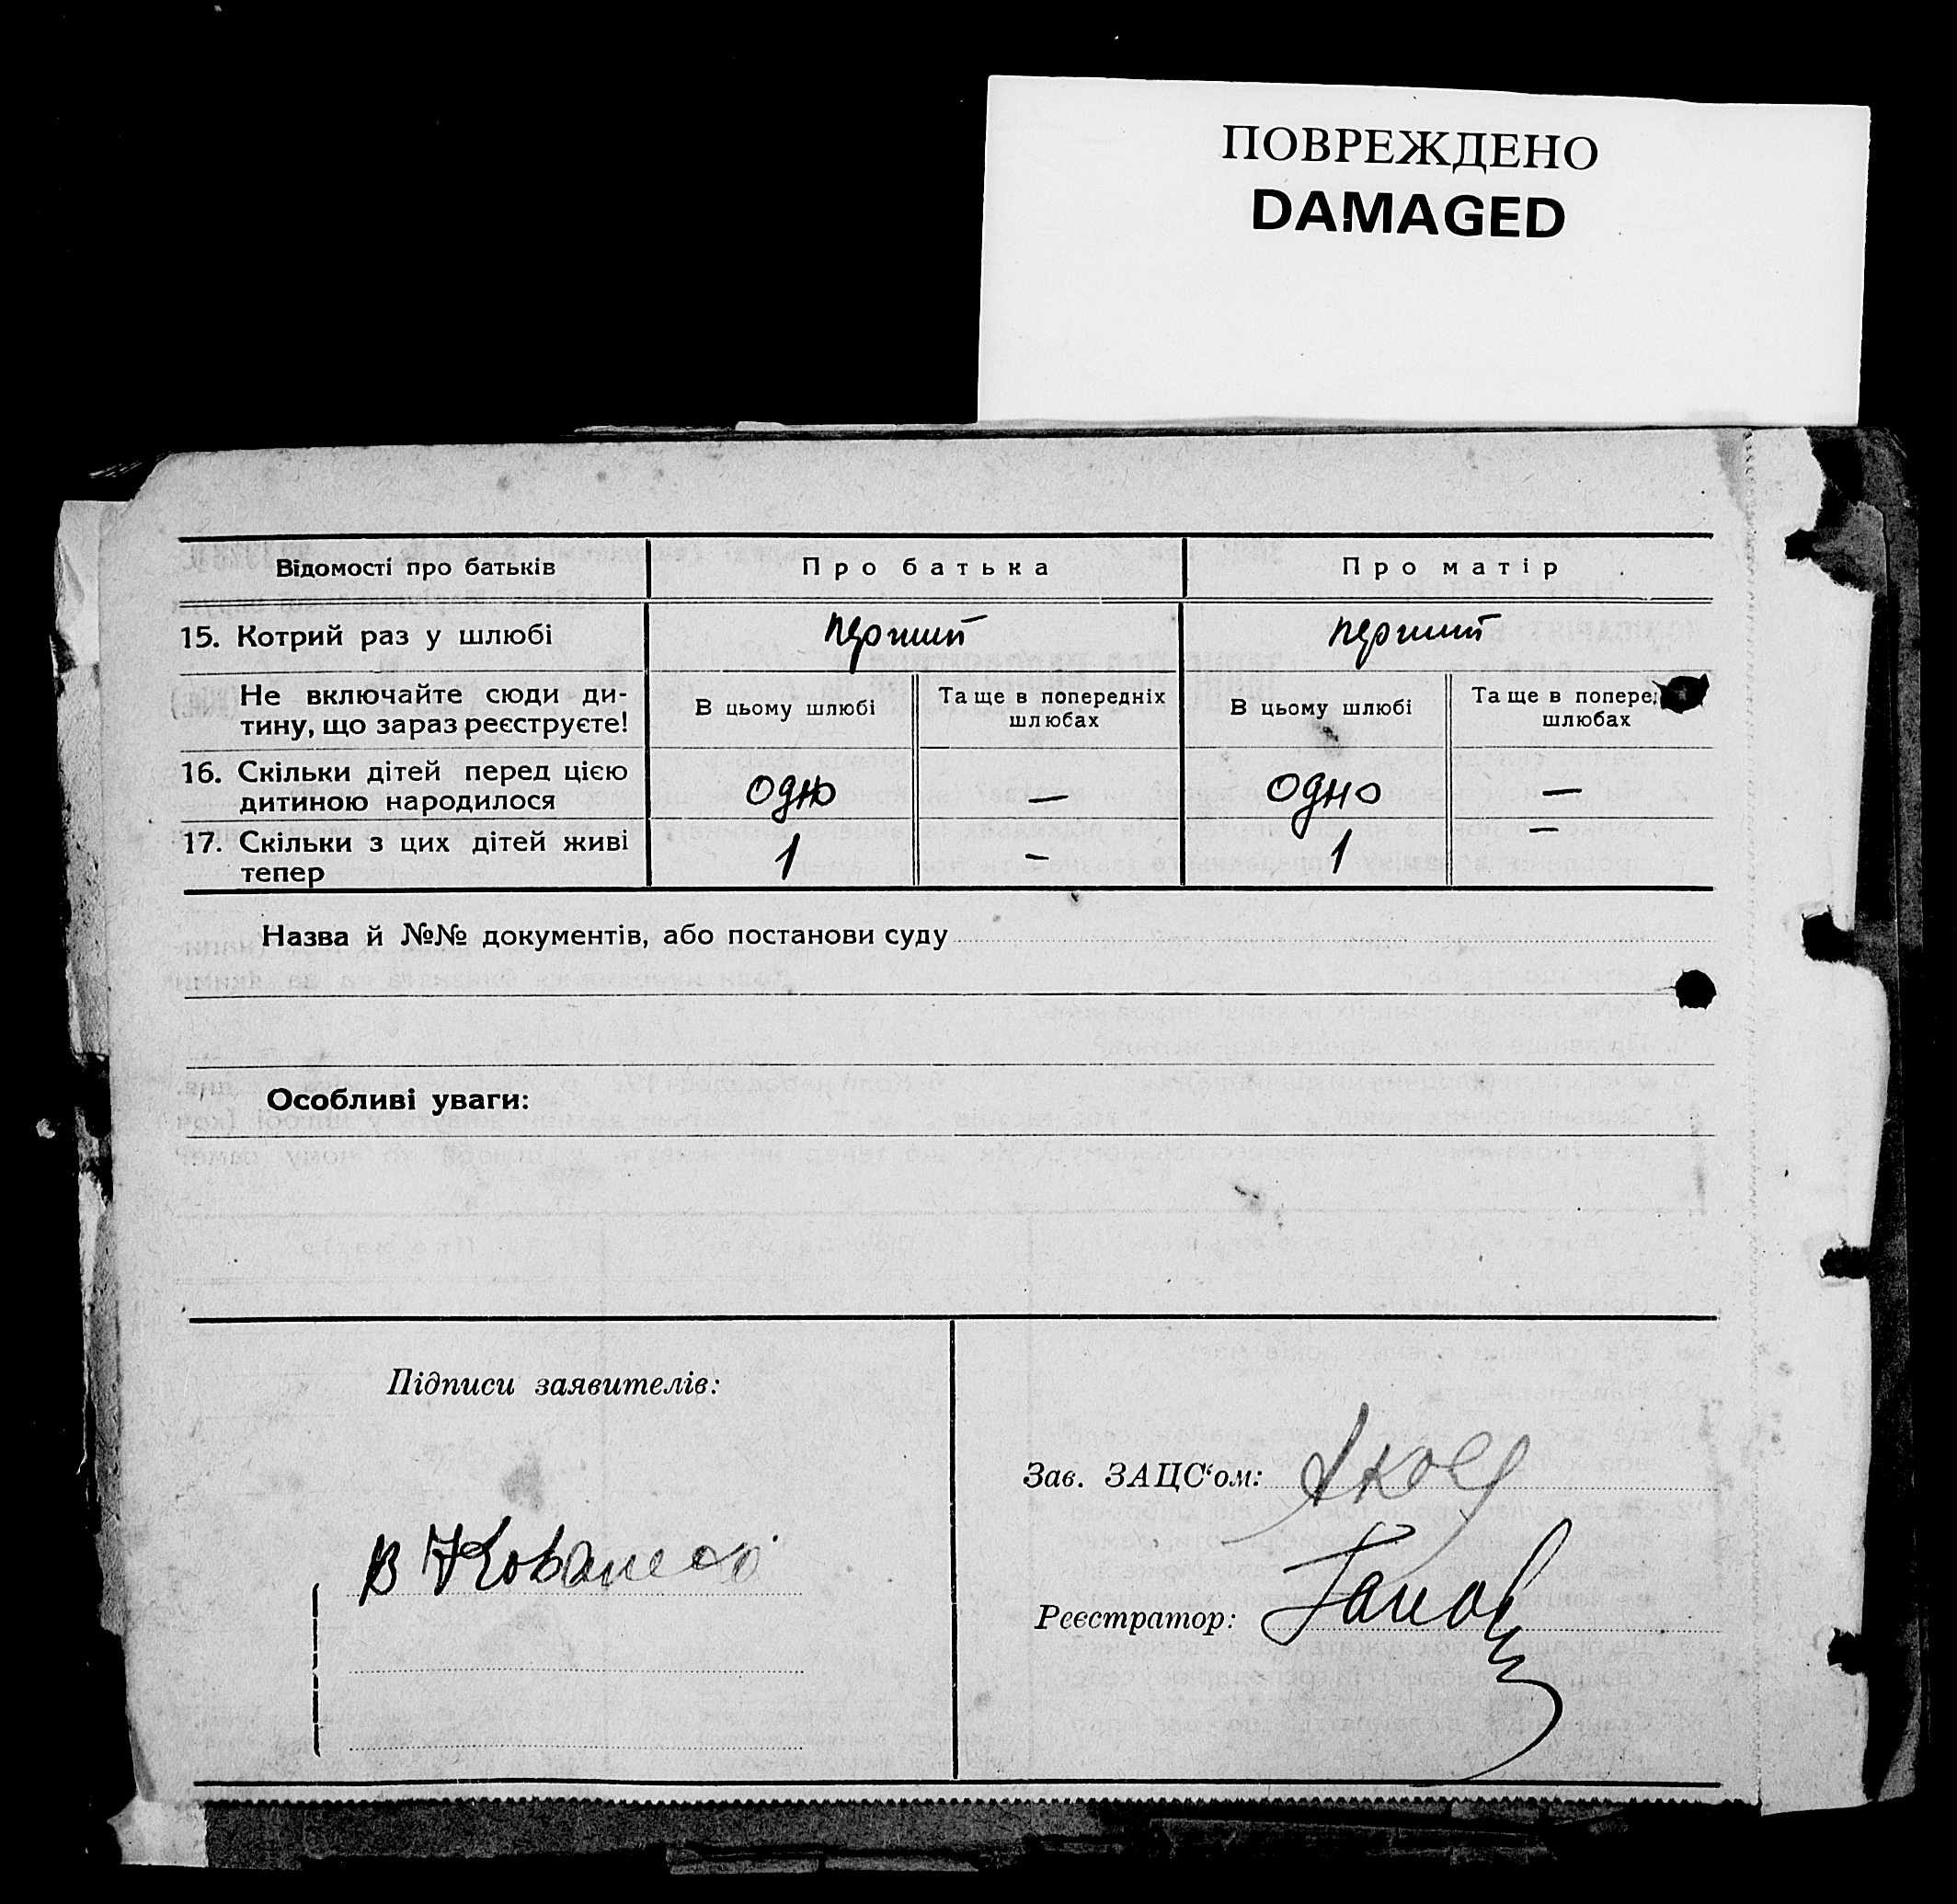 ПОВРЕЖДЕНО
DAMAGED
Відомості про батьків
Про батька
Про матір
15. Котрий раз у шлюбі
перший
перший
Не включайте сюди ди-
тину, що зараз реєструєте!
В цьому шлюбі
Та ще в попередніх
шлюбах
В цьому шлюбі
Та ще в попере
шлюбах
16. Скільки дітей перед цією
дитиною народилося
одно
—
одно
—
17. Скільки з цих дітей живі
тепер
1
–
1
–
Назва й №№ документів, або постанови суду
Особливі уваги:
Підписи заявителів:
Зав. ЗАЦС‘ом:
Реєстратор: